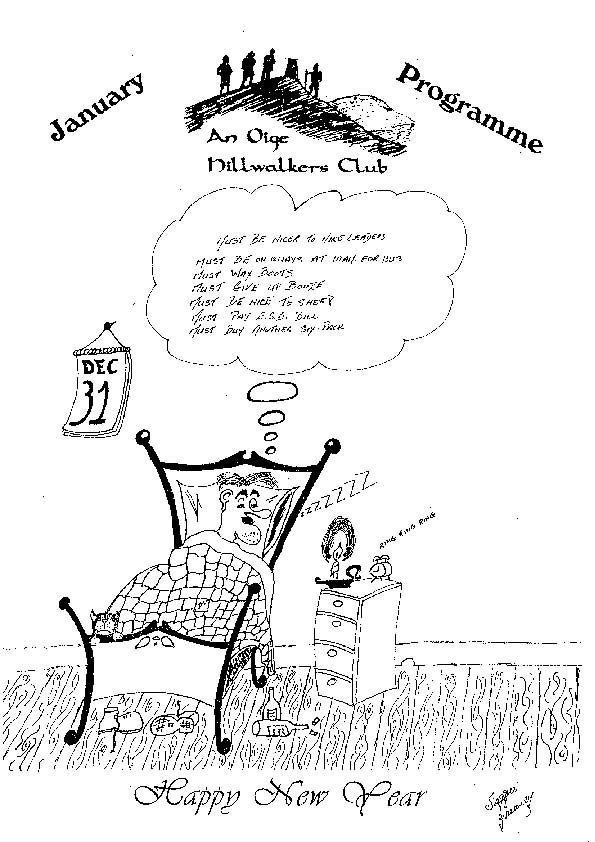 January
Programme
An Oige
Hillwalkers Club
MUST BE NICER TO HIKE LEADERS
MUST BE ON QUAYS AT 10AM FOR BUS
MUST WAX BOOTS
MUST GIVE UP BOOZE
MUST BE NICE TO SHEEP
MUST PAY E.S.B. BILL
MUST BUY ANOTHER SIX-PACK
DEC
31
ZZZZZZZ
RING RING RING
Happy New Year